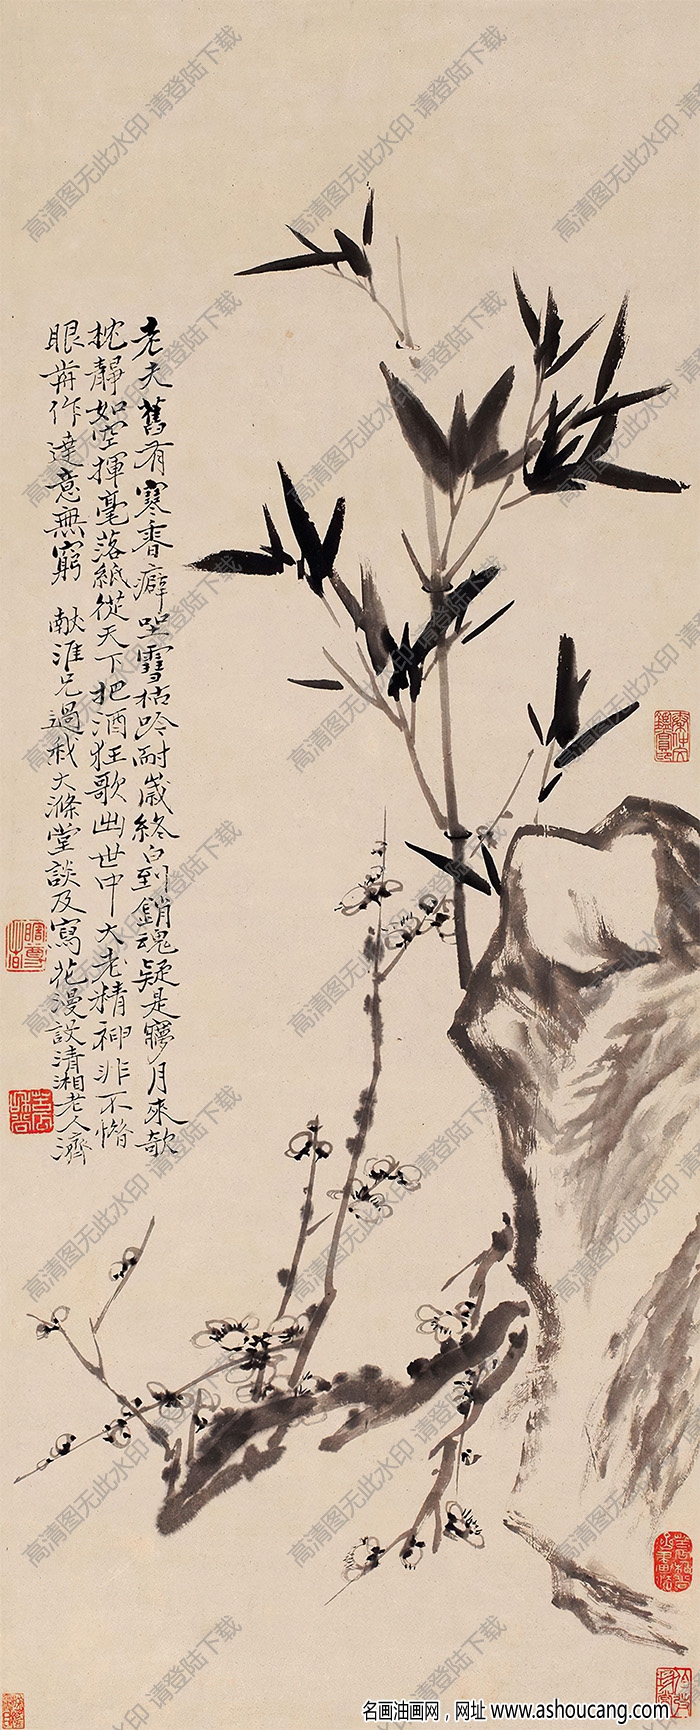 老夫舊有寒香癖坐雪枯吟耐歲終白到銷魂疑是夢月來欹
枕靜如空揮毫落紙從天下把酒狂歌幽世中大老精神非不惜
眼前作達意無窮　献淮兄過我大滌堂談及寫花漫設清湘老人濟
高清图无此水印 请登陆下载
名画油画网，网址 www.ashoucang.com